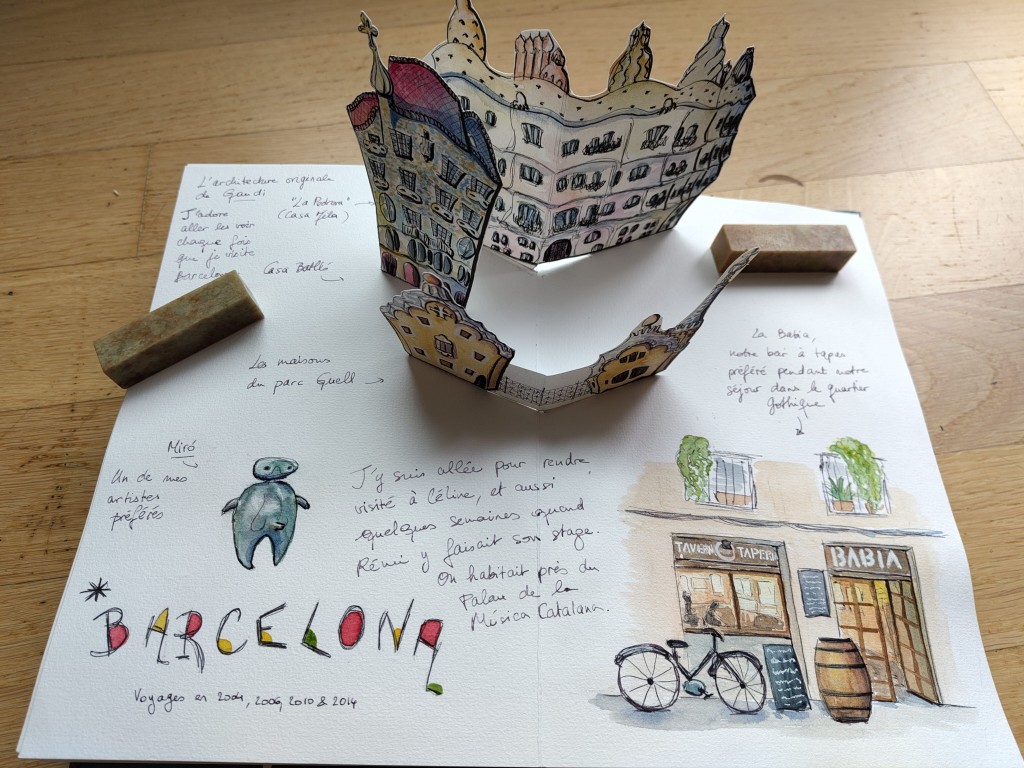 L'architecture originale
de Gaudí
J'adore
aller les voir
chaque fois
que je visite
Barcelon
"La Pedrera"
(Casa Mila)
Casa Batlló
Les maisons
du parc Guell
La Babia,
notre bar à tapas
préféré pendant notre
séjour dans le quartier
gothique
Miró
Un de mes
artistes
préférés
J'y suis allée pour rendre
visite à Céline, et aussi
quelques semaines quand
Rémi y faisait son stage.
On habitait près du
Palau de la
Música Catalana.
TAVERNA TAPERIA
BABIA
BARCELONA
Voyages en 2004, 2006, 2010 & 2014